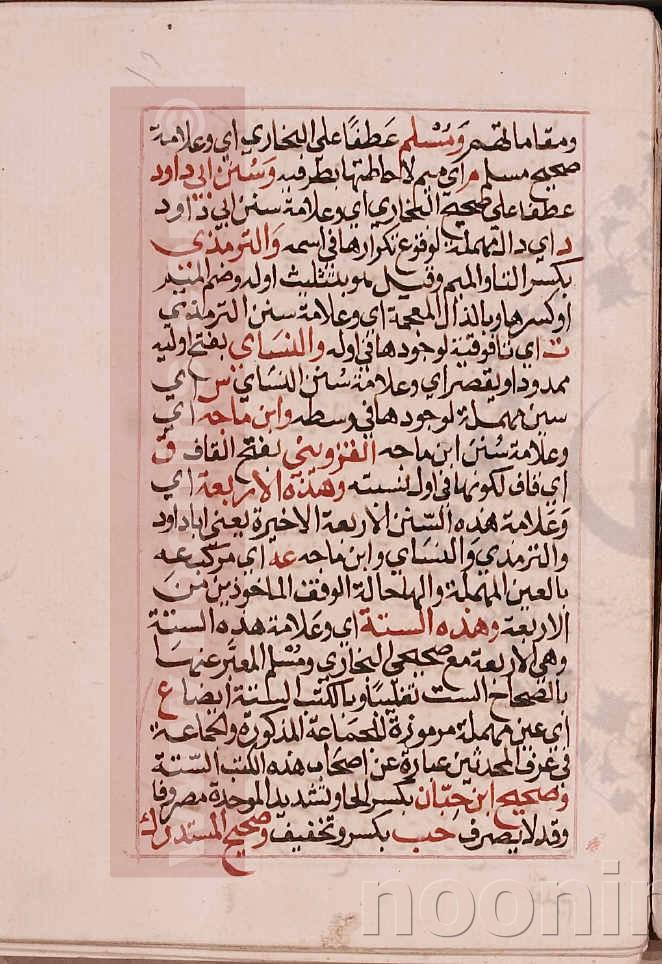 ومقاماتهم ومُسْلم عَطفًا على البخاري اي وعلامة
صحيح مسلم م اي ميم لاحاطتها بطرفيه وسُنن ابي داود
عطفا على صحيح البخاري اي وعلامة سنن ابي داود
د اي دال مهملة لوقوع تكرارها في اسمه والترمذي
بكسر التا والميم وقيل هو بتثليث اوله وضم الميم
او كسرها وبالذال المعجمة اي وعلامة سنن الترمذي
ت اي تا فوقية لوجودها في اوله والنساي بفتح اوليه
ممدود او يقصر اي وعلامة سُنن النساي س اي
سين مهملة لوجودها في وسطه وابن ماجه اي
وعلامة سُنن ابن ماجه القزويني بفتح القاف ق
اي قاف لكونها في اول نسبته وهذه الاربعة اي
وعَلامة هذه السّنن الاربعة الاخيرة يعني ابا داود
والترمذي والنساي وابن ماجه عه اي مركب عه
بالعين المهملة والها حالة الوقف الماخوذين من
الاربعة وهذه الستة اي وعلامة هذه الستة
وهي الاربعة مع صحيحي البخاري ومُسْلم المعبَّر عنها
بالصحاح الست تغليبًا وبالكتب الستة ايضا ع
اي عين مهملة مرموزة للجماعة المذكورة والجماعة
في عُرف المحدثين عبارة عن اصحاب هذه الكتب السّتة
وصحيح ابن حِبّان بكسر الحا وتشديد الموحدة مصروفا
وقد لا يصرف حب بكسر وتخفيف وصحيح المستدرك
noonin